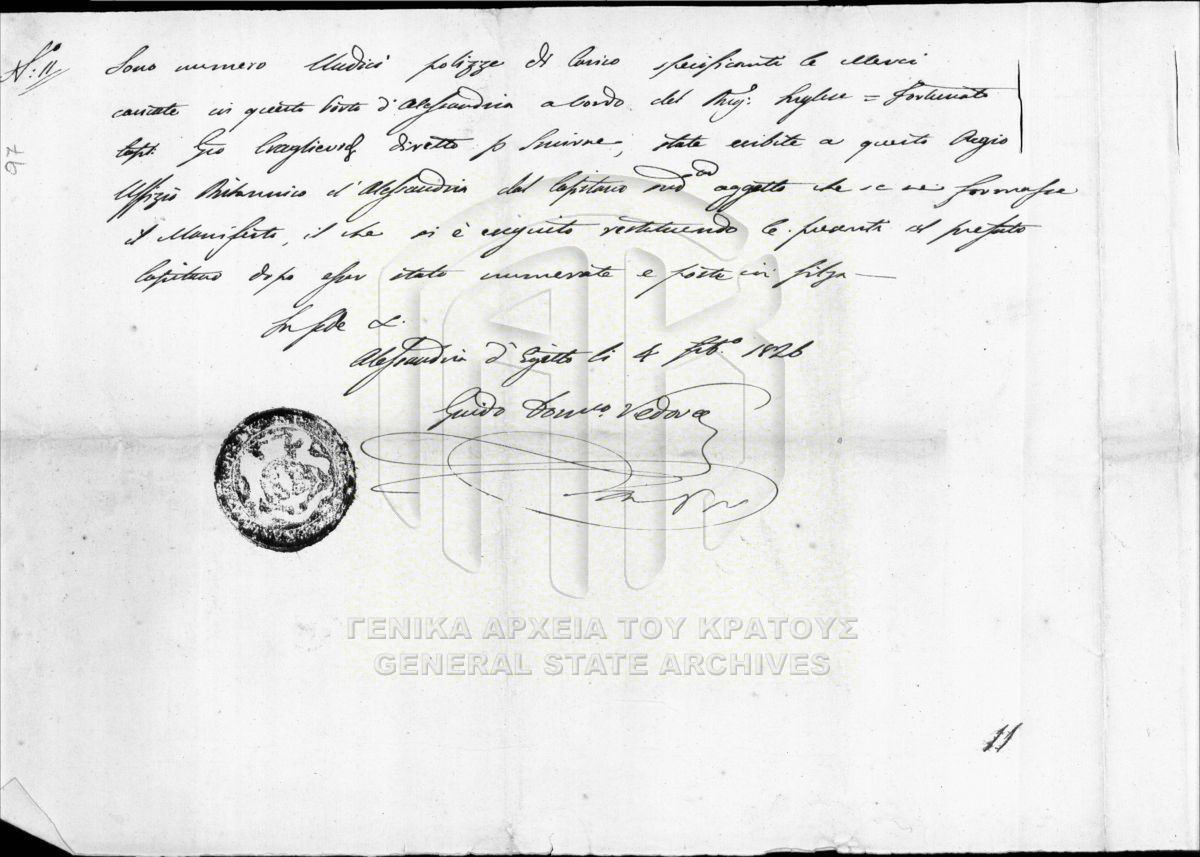 N.º 11
Sono numero Undici polizze di Carico specificanti le Merci
caricate in questo Porto d'Alessandria a bordo del Brig. Inglese = Fortunato
Capt. Gio diretto p Smirne, state esibite a questo Regio
Uffizio Britannico d'Alessandria dal Capitano sud.º oggetto che se ne formasse
il Manifesto, il che si è eseguito restituendo le presenti al prefato
Capitano dopo esser state numerate e poste in filza
In fede &.
Alessandria d'Egitto li 4 1826
Guido Dom.co Vedova
97
ΓΕΝΙΚΑ ΑΡΧΕΙΑ ΤΟΥ ΚΡΑΤΟΥΣ
GENERAL STATE ARCHIVES
11